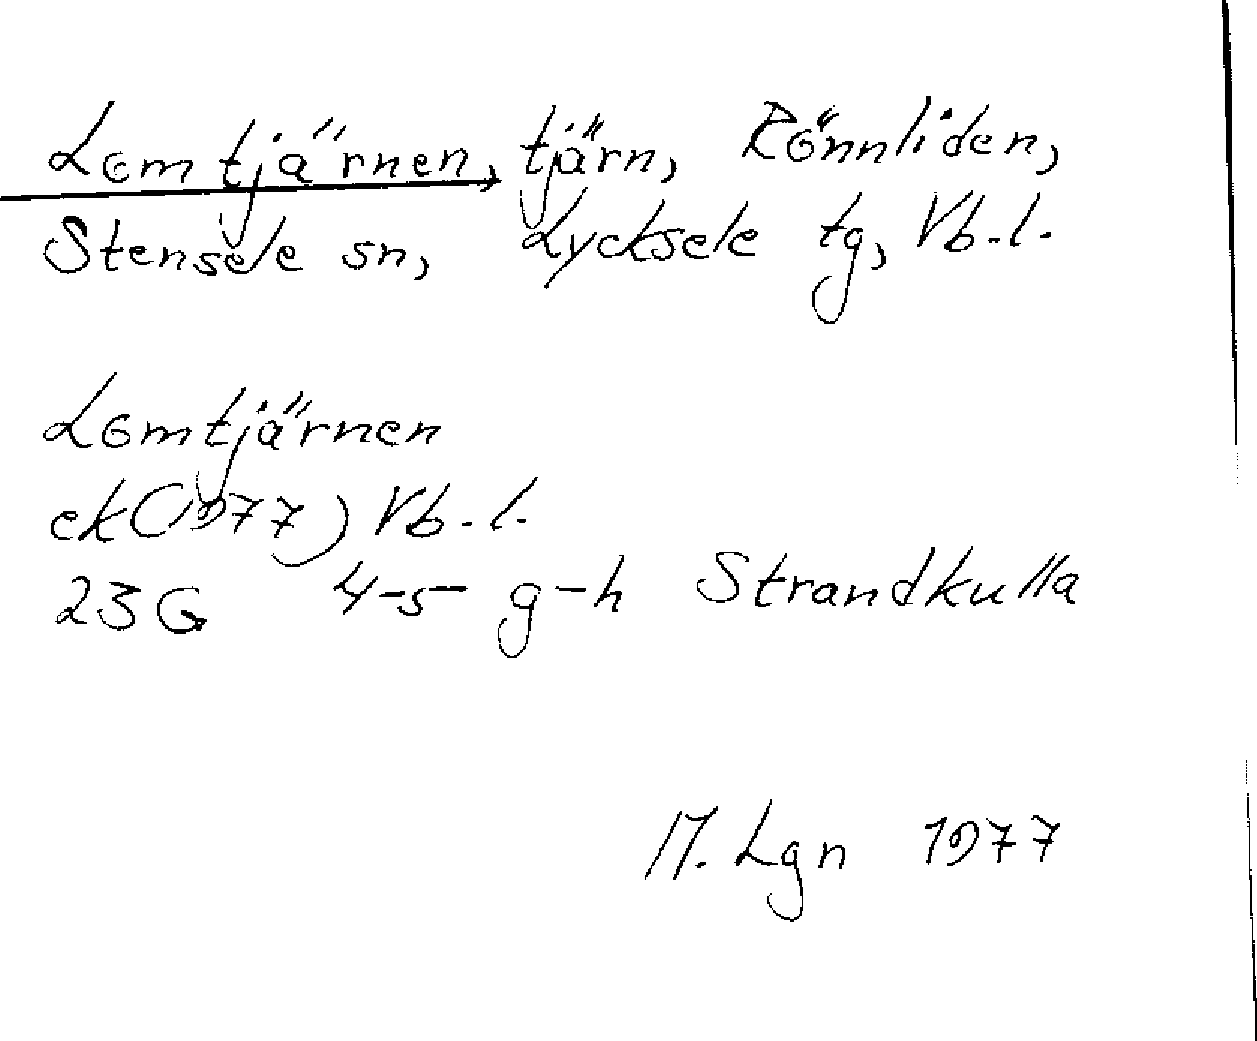 Lomtjärnen, tjärn, Rönnliden,
Stensele sn, Lycksele tg, Vb.l.
Lomtjärnen
ek (1977) Vb.l.
23G 4-5 g-h Strandkulla
M. Lgn 1977